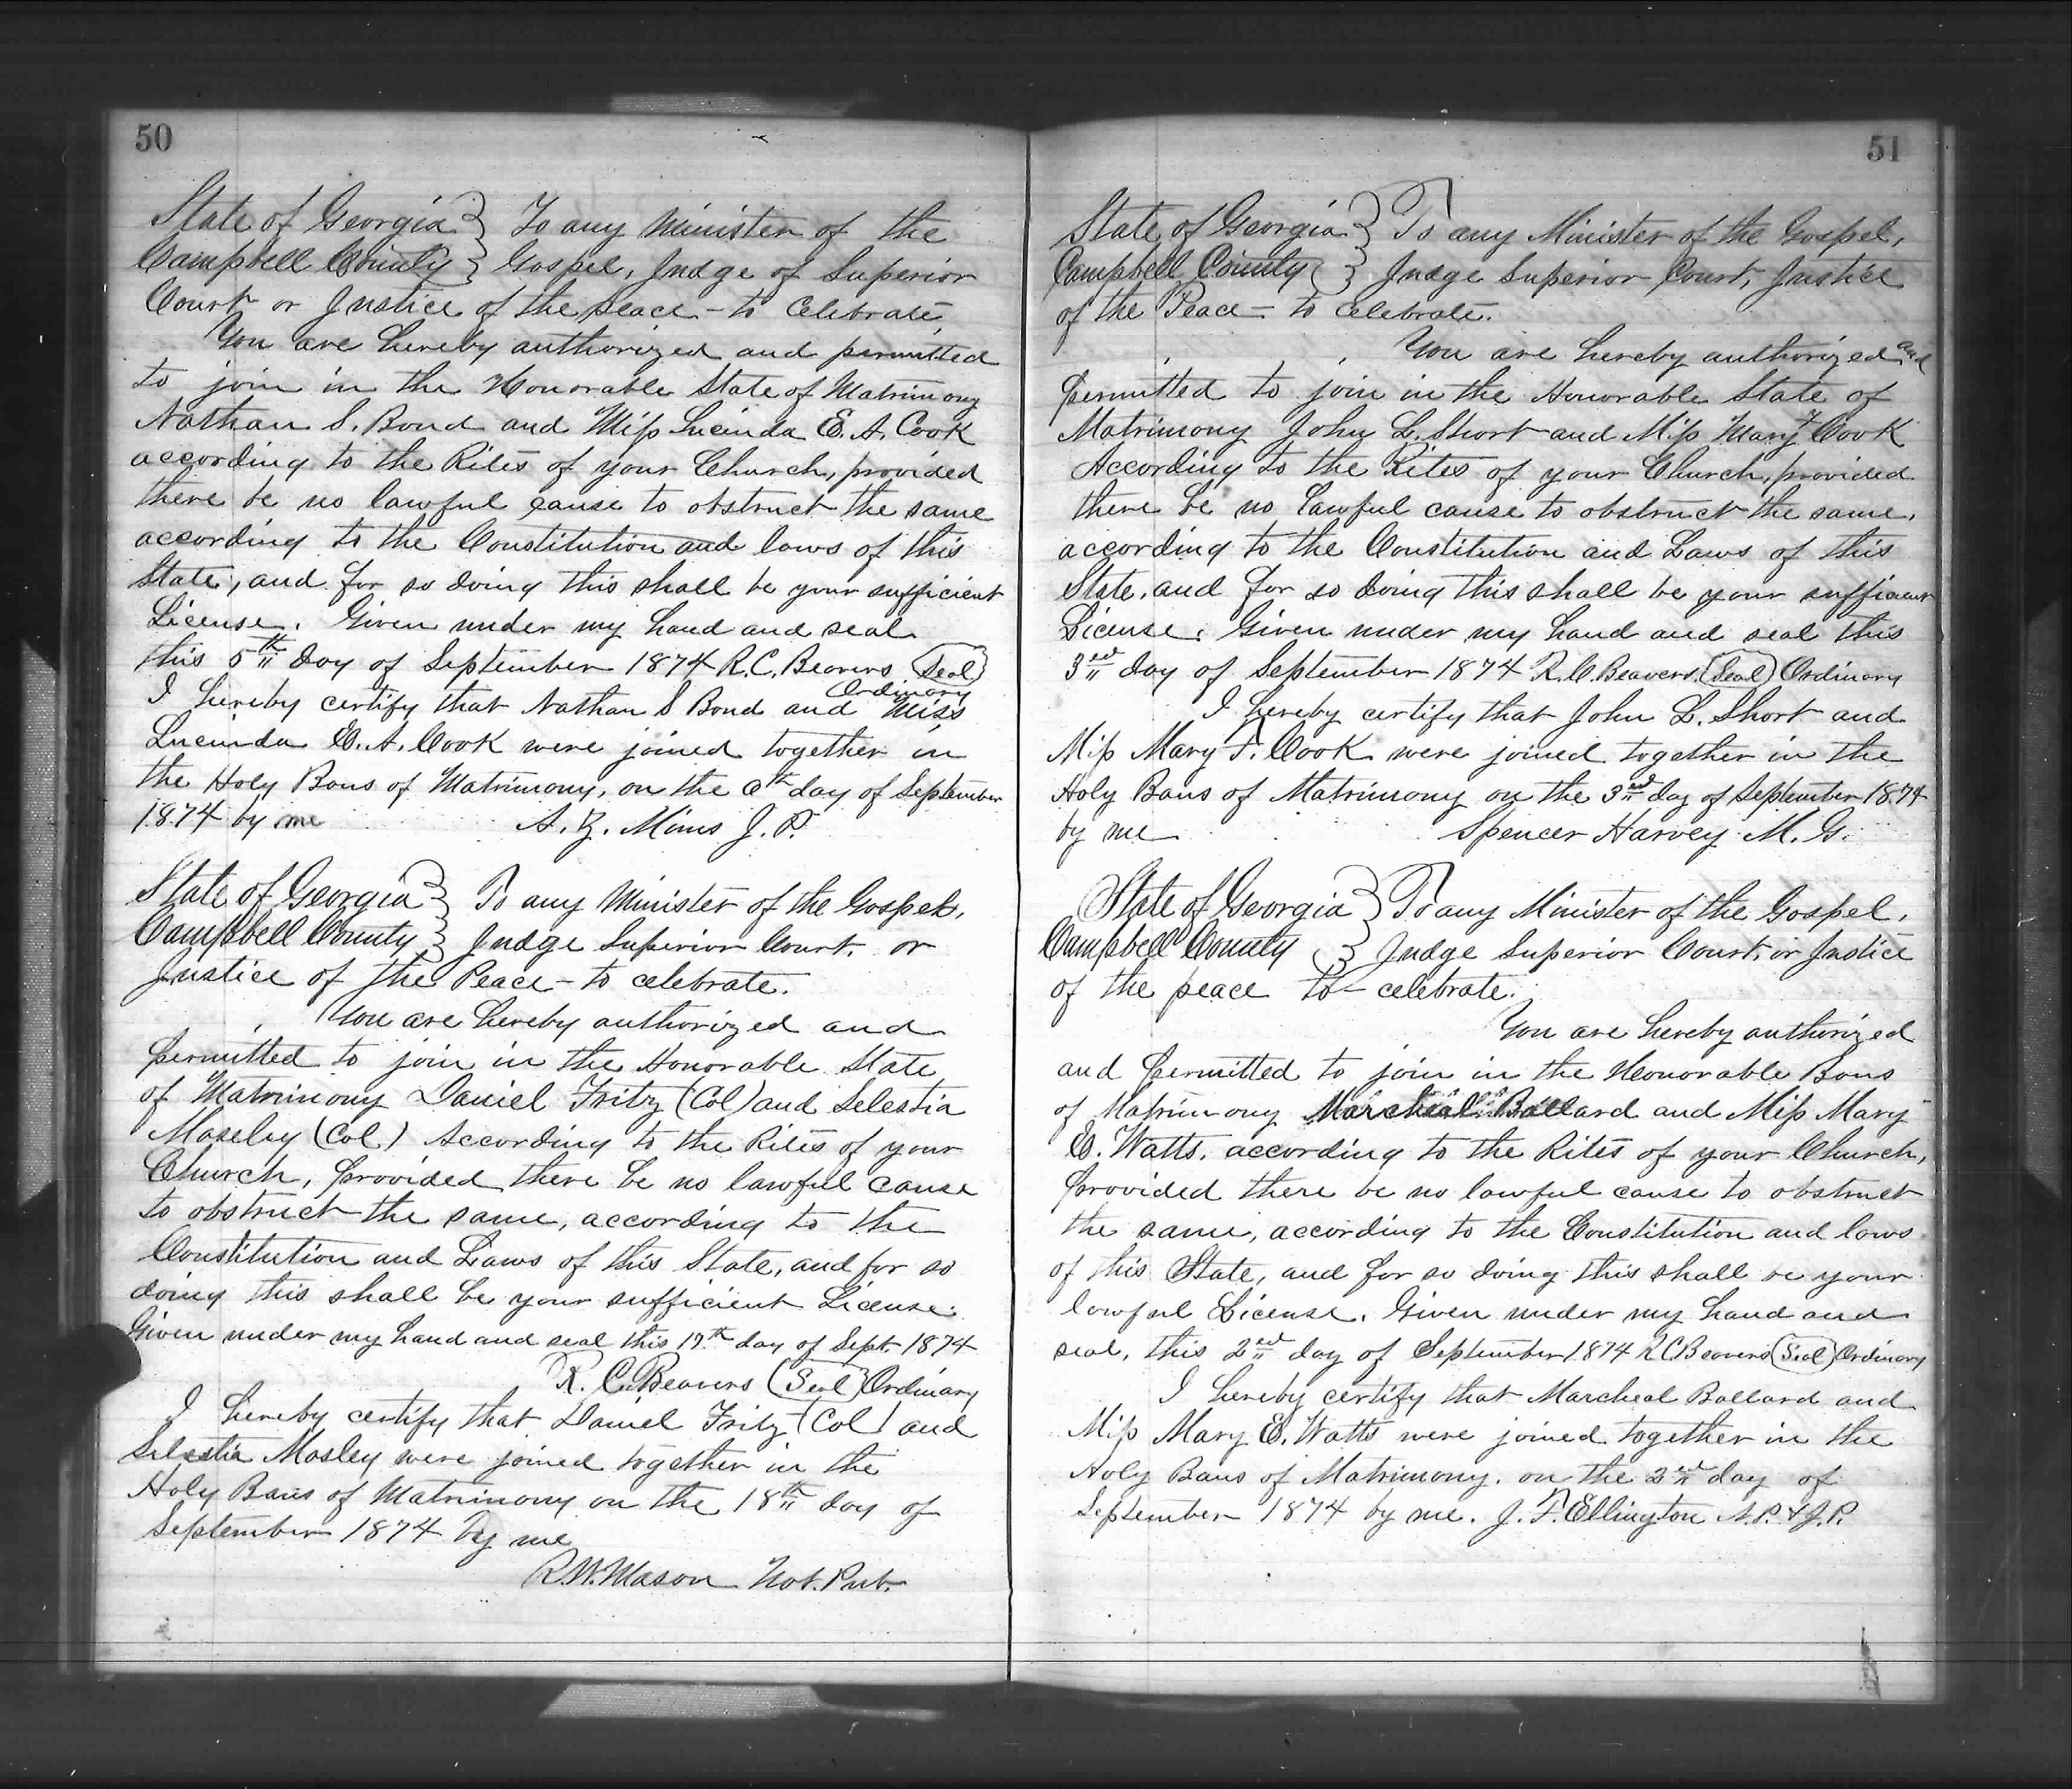 50
State of Georgia } To any Minister of the
Campbell County } Gospel, Judge of Superior
Court or Justice of the peace - to celebrate
You are hereby authorized and permitted
to join in the Honorable State of Matrimony
Nathan S. Bond and Miss Lucinda E. A. Cook
according to the Rites of your Church, provided
there be no lawful cause to obstruct the same
according to the Constitution and laws of this
State, and for so doing this shall be your sufficient
License. Given under my hand and seal
this 5th day of September 1874 R. C. Beavers (Seal)
Ordinary
I hereby certify that Nathan S Bond and Miss
Lucinda E. A. Cook were joined together in
the Holy Bans of Matrimony, on the day of September
1874 by me A. Z. Mims J. P.
State of Georgia } To any Minister of the Gospel,
Campbell County } Judge Superior Court. or
Justice of the Peace - to celebrate.
You are hereby authorized and
permitted to join in the Honorable State
of Matrimony Daniel Fritz (Col) and Selestia
Moseley (Col) According to the Rites of your
Church, provided there be no lawful cause
to obstruct the same, according to the
Constitution and Laws of this State, and for so
doing this shall be your sufficient License.
Given under my hand and seal this 17th day of Sept. 1874
R. C. Beavers (Seal) Ordinary
I hereby certify that Daniel Fritz (Col) and
Selestia Mosley were joined together in the
Holy Bans of Matrimony on the 18th day of
September 1874 by me
R. W. Mason Not. Pub.
51
State of Georgia } To any Minister of the Gospel,
Campbell County } Judge Superior Court, Justice
of the Peace - to celebrate.
You are hereby authorized and
permitted to join in the Honorable State of
Matrimony John L. Short and Miss Mary F Cook
According to the Rites of your Church, provided
there be no lawful cause to obstruct the same,
according to the Constitution and Laws of this
State, and for so doing this shall be your sufficient
License. Given under my hand and seal this
3ed day of September 1874 R. C. Beavers (Seal) Ordinary
I hereby certify that John L. Short and
Miss Mary F. Cook were joined together in the
Holy Bans of Matrimony on the 3ed day of September 1874
by me Spencer Harvey M. G.
State of Georgia } To any Minister of the Gospel,
Campbell County } Judge Superior Court, or Justice
of the peace to - celebrate.
You are hereby authorized
and permitted to join in the Honorable Bans
of Matrimony Marcheal Ballard and Miss Mary
E. Watts, according to the Rites of your Church,
provided there be no lawful cause to obstruct
the same, according to the Constitution and laws
of this State, and for so doing this shall be your
lawful License. Given under my hand and
seal, this 2ed day of September 1874 R C Beavers (Seal) Ordinary
I hereby certify that Marcheal Ballard and
Miss Mary E. Watts were joined together in the
Holy Bans of Matrimony. on the 2ed day of
September 1874 by me. J. F. Ellington N. P. & J. P.